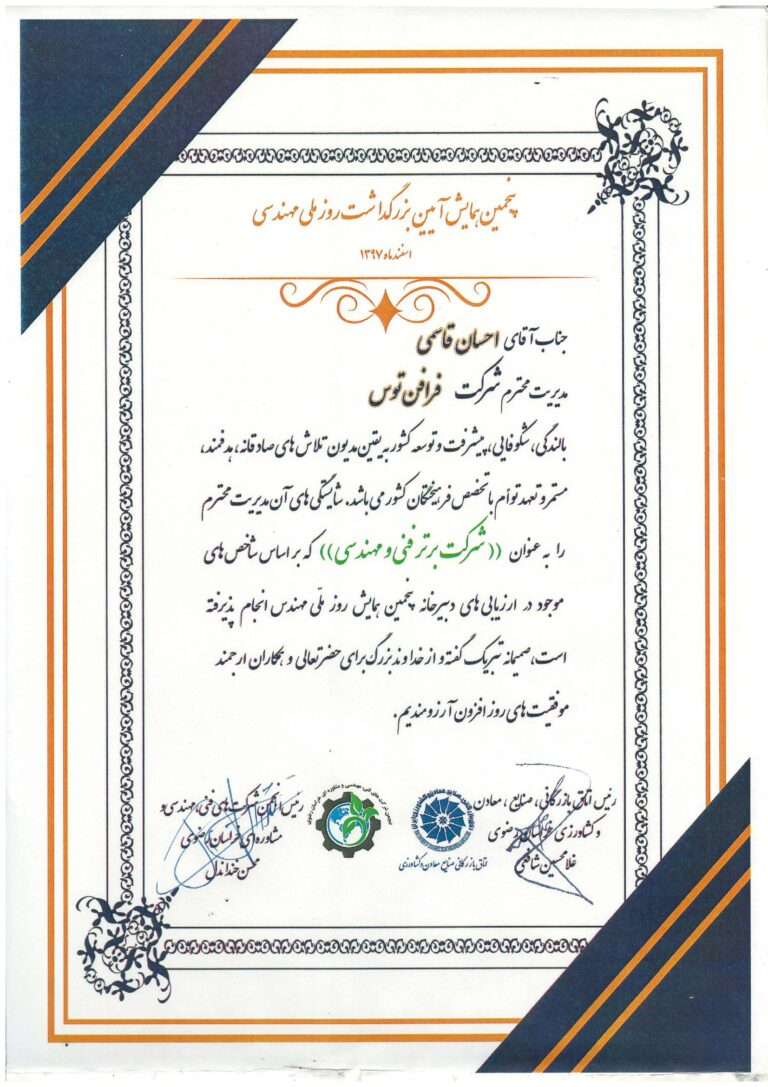 پنجمین همایش آیین بزرگداشت روز ملی مهندسی
اسفند ماه ۱۳۹۷
جناب آقای احسان قاسمی
مدیریت محترم شرکت فرافن توس
بالندگی، شکوفایی، پیشرفت و توسعه کشور به یقین مدیون تلاش های صادقانه، هدفمند،
مستمر و تعهد توأم با تخصص فرهیختگان کشور می باشد. شایستگی های آن مدیریت محترم
را به عنوان ((شرکت برتر فنی و مهندسی)) که بر اساس شاخص های
موجود در ارزیابی های دبیرخانه پنجمین همایش روز ملّی مهندس انجام پذیرفته
است، صمیمانه تبریک گفته و از خداوند بزرگ برای حضرتعالی و همکاران ارجمند
موفقیت های روز افزون آرزومندیم.
رئیس اتاق بازرگانی، صنایع، معادن
و کشاورزی خراسان رضوی
غلامحسین شافعی
اتاق بازرگانی صنایع معادن و کشاورزی
رئیس انجمن شرکت های فنی، مهندسی و
مشاوره ای خراسان رضوی
محسن خندان دل